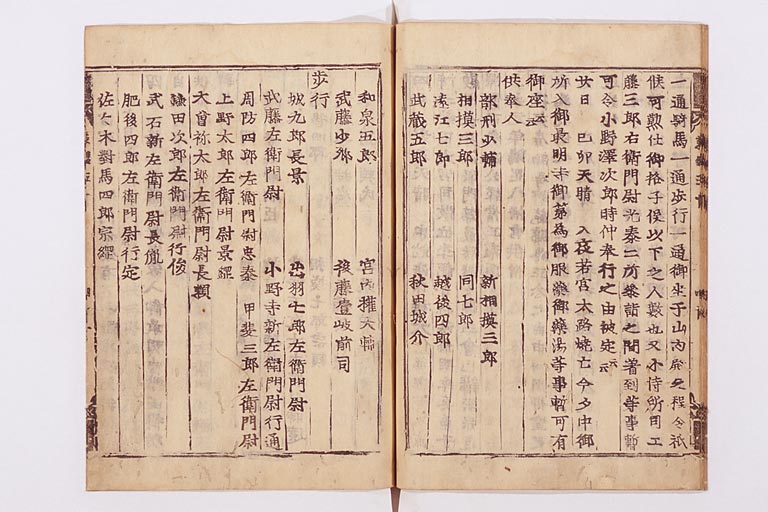 一通騎馬一通歩行一通御坐于山内殿之程令祇
候可勲仕御格子侯以下之人数也又小侍所司工
藤三郎右衛門尉光泰二所参詣之間着到等事暫
可令小野澤次郎時仲奉行之由被定云云
廿日 己卯天晴 入夜若宮大路焼亡今夕中御
所入御最明寺御第為御服薬御薬湯等事暫可有
御座云云
供奉人
刑部少輔 新相摸三郎
相摸三郎 同七郎
遠江七郎 越後四郎
武蔵五郎 秋田城介
和泉五郎 宮内権大輔
武藤少卿 後藤壹岐前司
歩行
城九郎長景 出羽七郎左衛門尉
武藤左衛門尉 小野寺新左衛門尉行通
周防四郎左衛門尉忠泰 甲斐三郎左衛門尉
上野太郎左衛門尉景綱
大曾祢太郎左衛門尉長頼
鎌田次郎左衛門尉行俊
武石新左衛門尉長胤
肥後四郎左衛門尉行定
佐々木對馬四郎宗綱